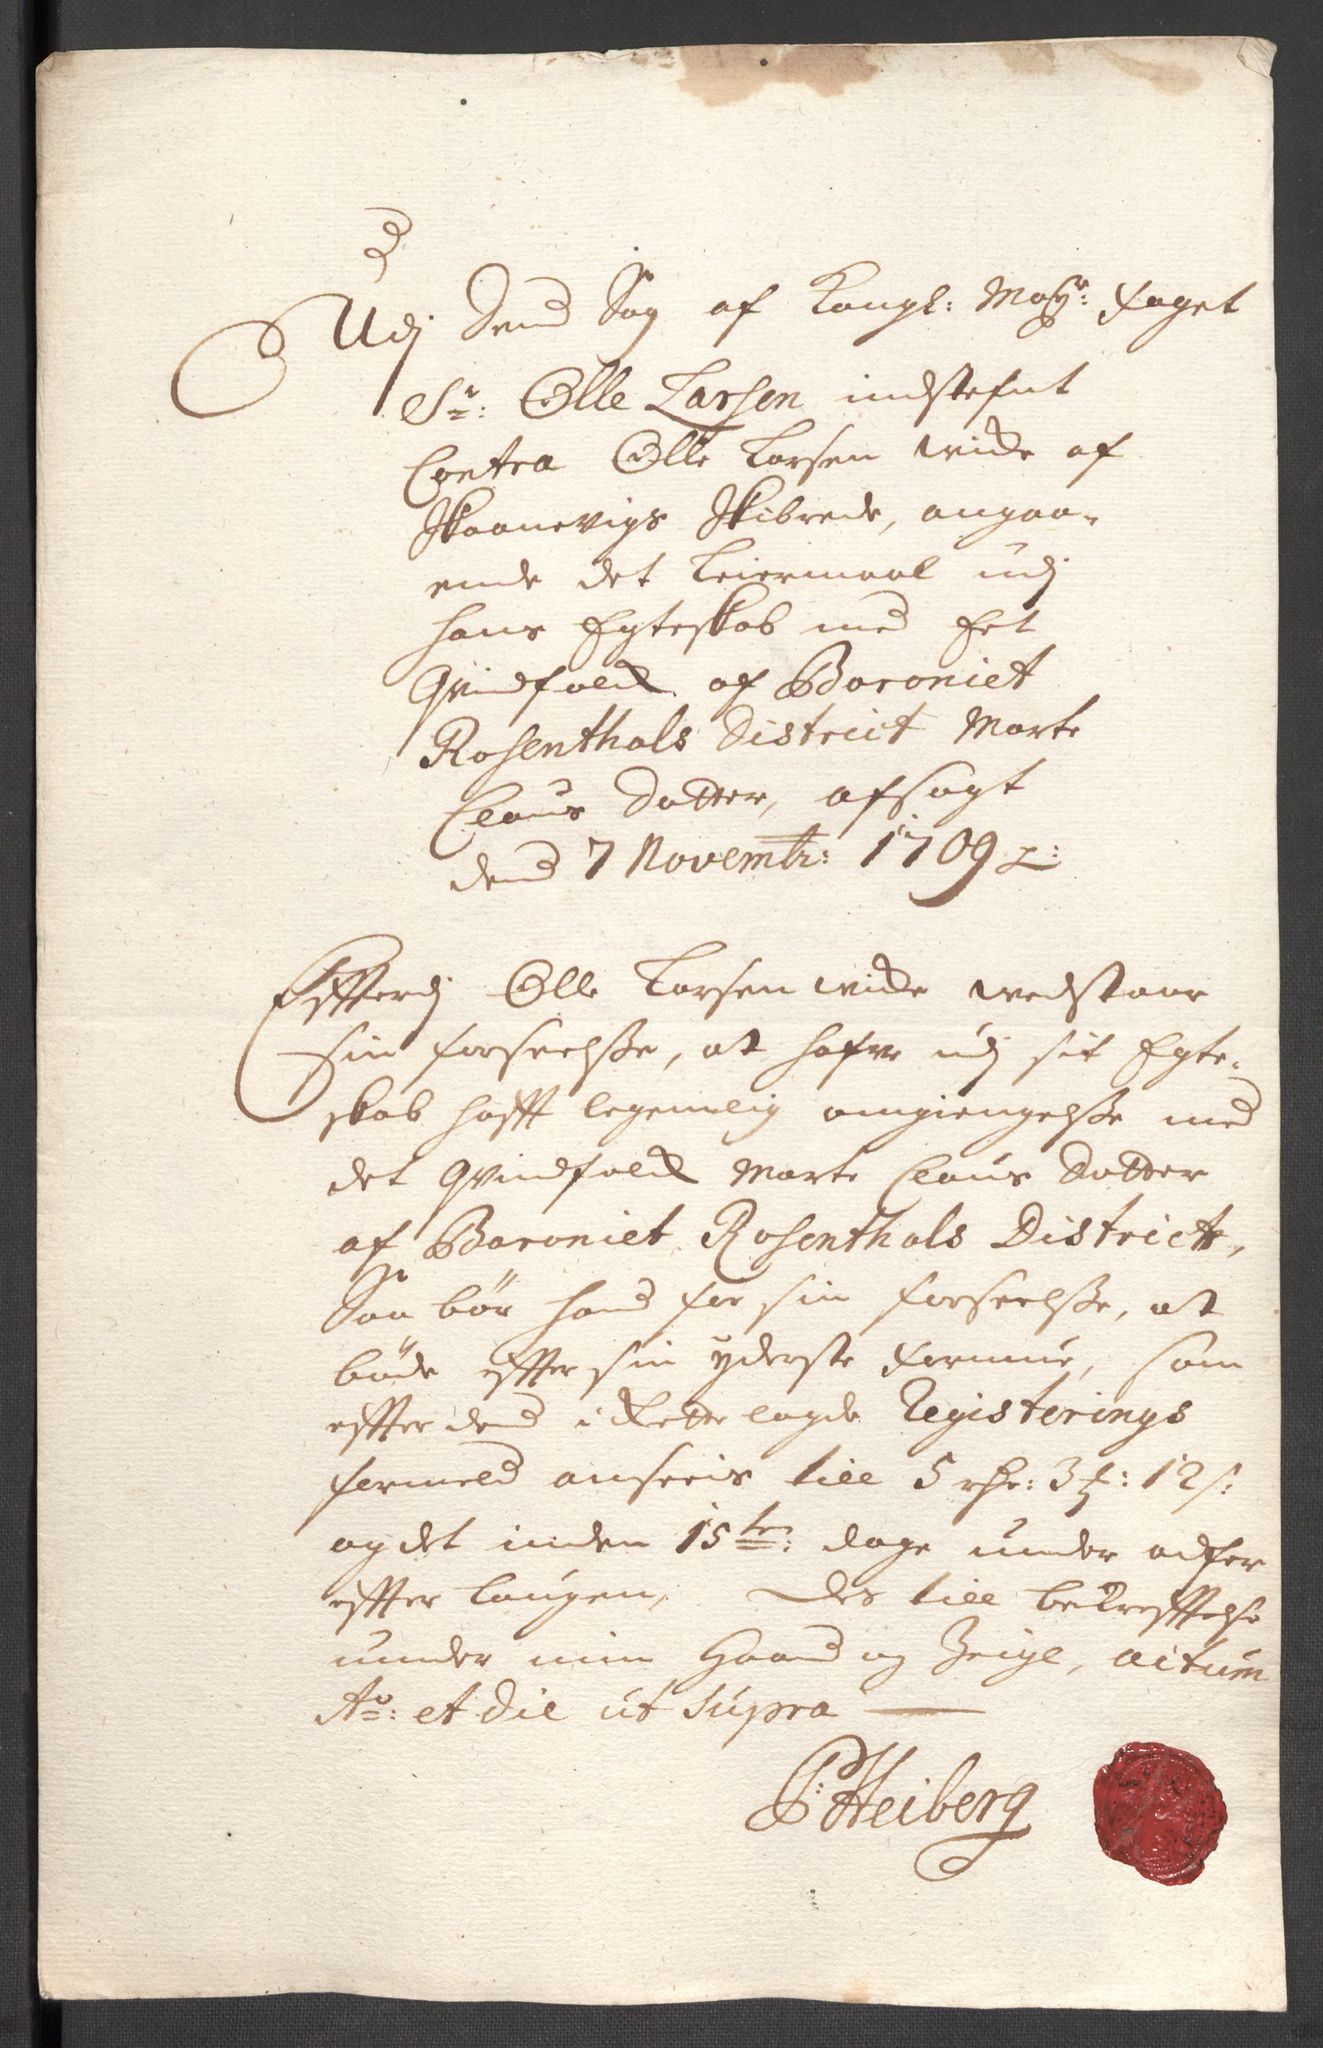 Udj Dend Sag af Kongl: May:tz foget
Sr: Olle Larsen indstefnt
Contra Olle Larsen wide af
Skaanevigs Skibrede, angaa-
ende det Leiermaal udj
hans Egteskab med Eet
Qvindfolck af Baroniet
Rosenthals District Marte
Claus Datter, afsagt
dend 7 Novembr: 1709
Effterdj Olle Larsen wide wedstaar
sin forseelsse, at hafve udj sit Egte-
skab hafft legemlig omgiengelsse med
det Qvindfolck Marte Claus Datter
af Baroniet Rosenthals District,
Saa bör hand for sin forseelsse, at
böde effter sin yderste formue, som
effter dend i Rette lagde Registerings
formeld ansees till 5 rdr: 3 : 12 s:
og det inden 15ten: dage under adfer
effter laugen, Des till bekrefftelse
under min Haand og Zeigl, actum
Ao: et Die ut supra
P: Heiberg